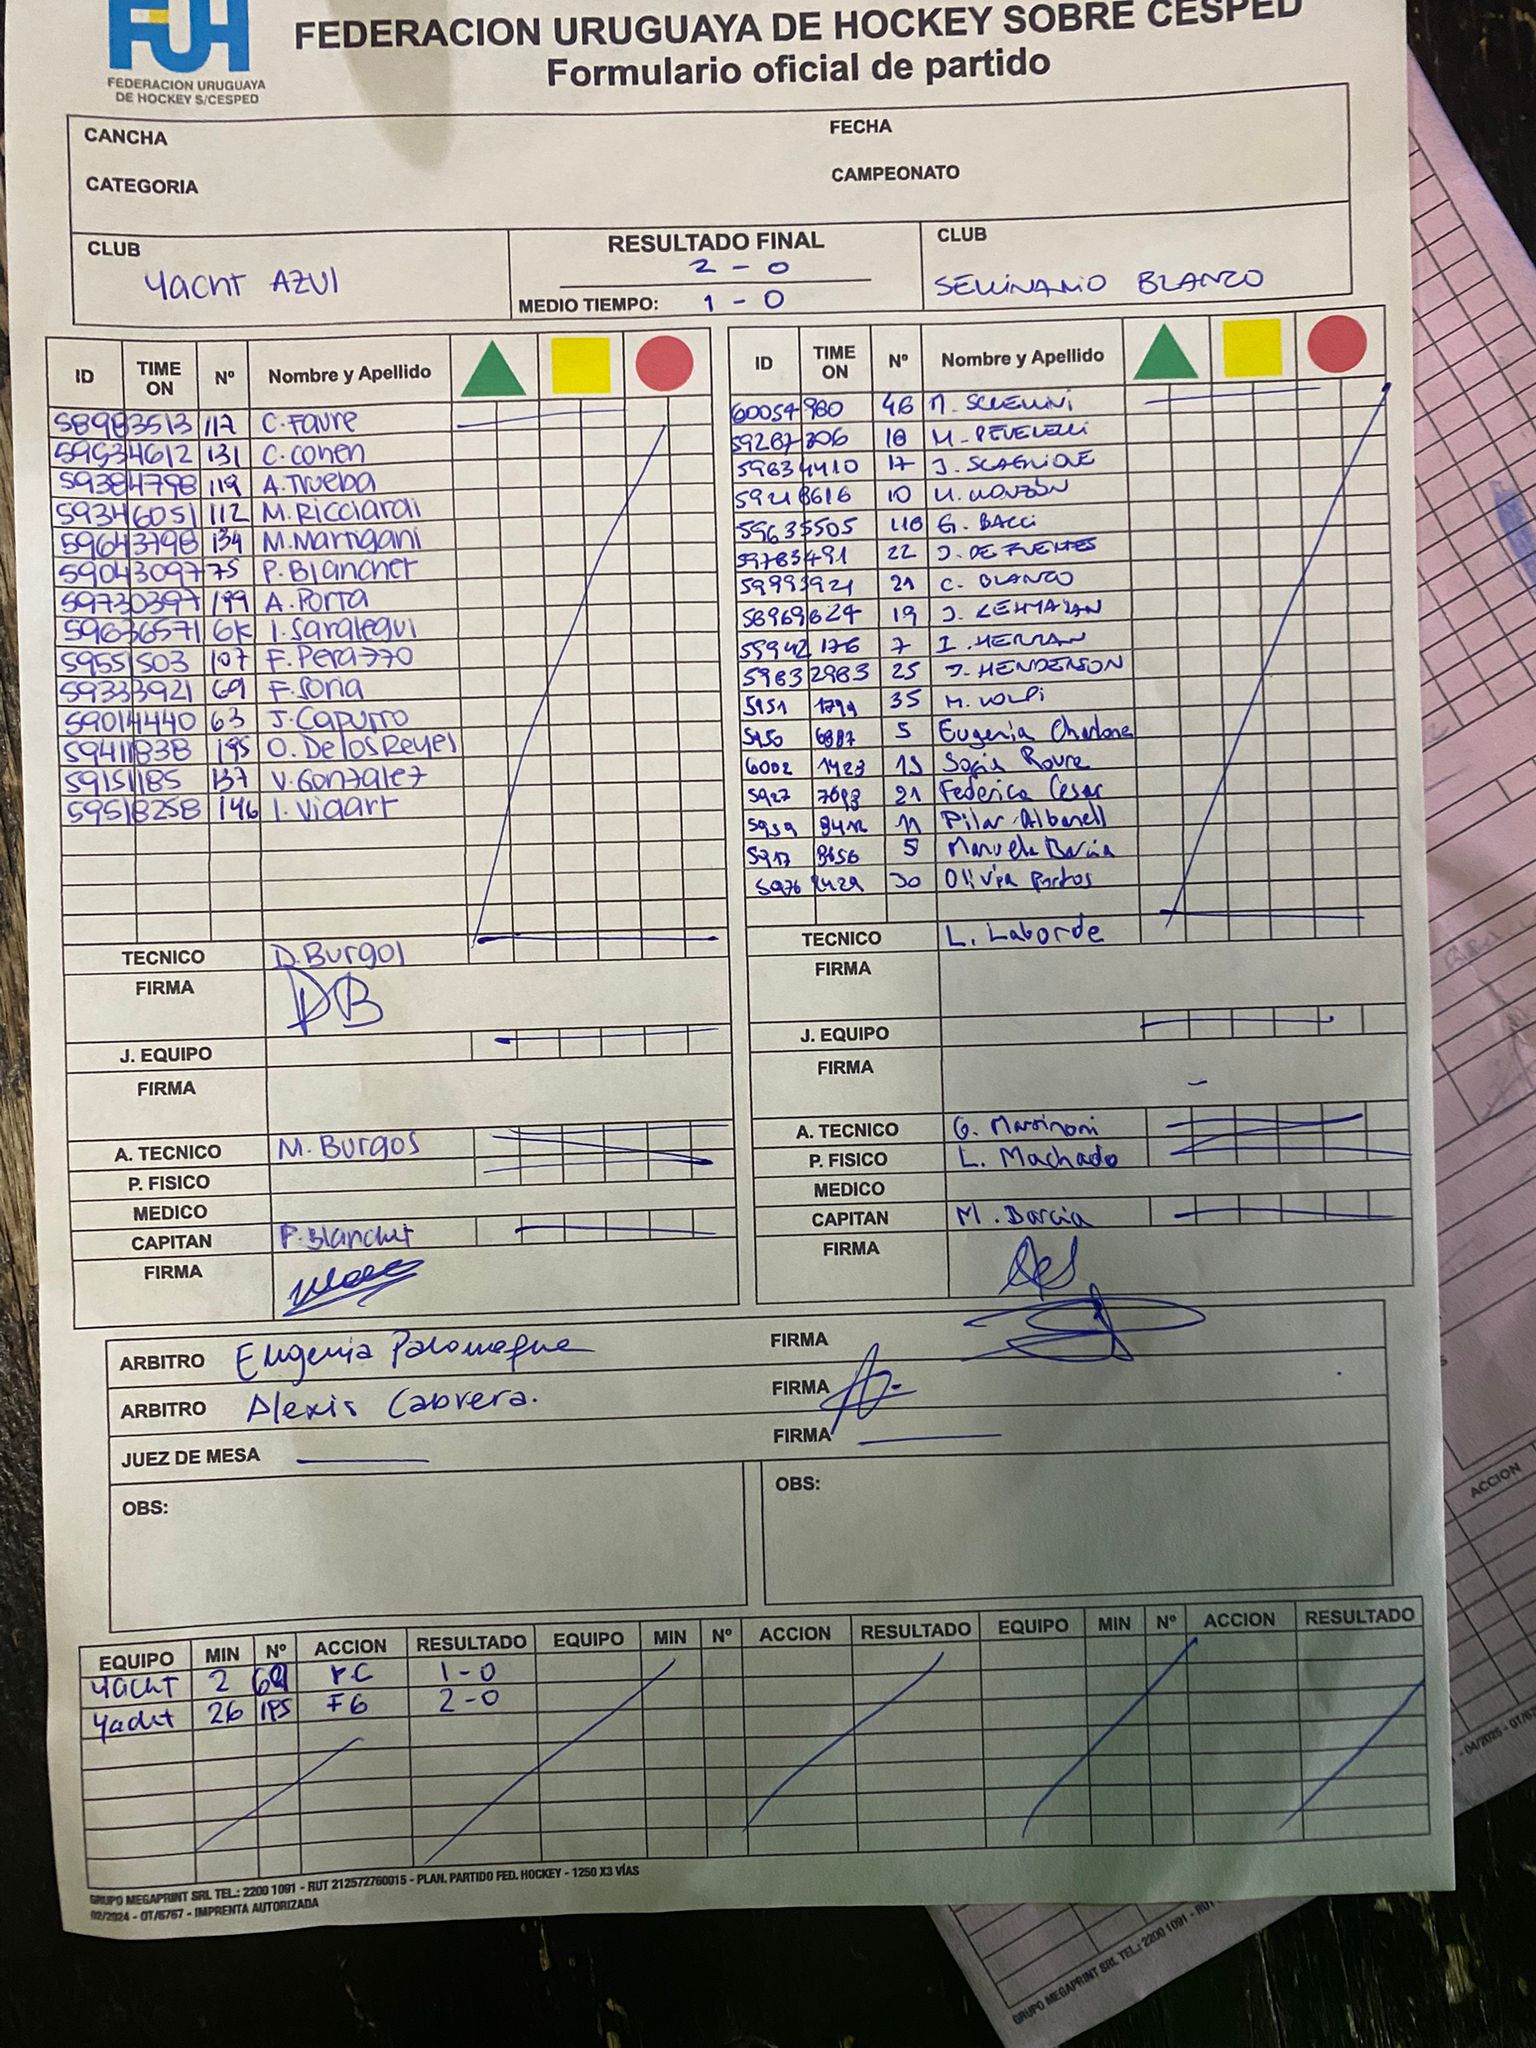 FUH
FEDERACION URUGUAYA
DE HOCKEY S/CESPED
FEDERACION URUGUAYA DE HOCKEY SOBRE CESPED
Formulario oficial de partido
CANCHA
FECHA
CATEGORIA
CAMPEONATO
CLUB
Yacht AZUL
RESULTADO FINAL
2 - 0
MEDIO TIEMPO: 1 - 0
CLUB
SEMINARIO BLANCO
ID TIME ON Nº Nombre y Apellido
58983513 117 C. Favre
59534612 131 C. Cohen
59384798 119 A. Trueba
59346051 112 M. Ricciardi
59643798 134 M. Martigani
59043097 75 P. Blanchet
59730397 199 A. Porta
59636571 6K I. Saralegui
59551503 107 F. Perazzo
59333921 69 F. Soria
59014440 63 J. Capurro
59411838 195 O. De los Reyes
59151185 137 V. Gonzalez
59518258 146 I. Vidart
TECNICO D. Burgos
FIRMA DB
J. EQUIPO
FIRMA
A. TECNICO M. Burgos
P. FISICO
MEDICO
CAPITAN P. Blanchet
FIRMA
ID TIME ON Nº Nombre y Apellido
60054980 46
59287206 18
59634410 17
59218616 10 M. MONZÓN
59635505 118 G. BACCI
59783491 22 J. DE FUENTES
59993921 21 C. BLANCO
58969624 19 J. LEHMANN
59942176 7 I. HERRAN
59832983 25 J. HENDERSON
5951 1799 35 M. VOLPI
5950 6887 5 Eugenia
6002 1423 15 Sofia Roure
5927 7693 21 Federica Cesar
5959 9412 11 Pilar Albanell
5917 8656 5 Manuela Barcia
5976 2429 30 Olivia
TECNICO L. Laborde
FIRMA
J. EQUIPO
FIRMA
A. TECNICO G. Marsinoni
P. FISICO L. Machado
MEDICO
CAPITAN M. Barcia
FIRMA
ARBITRO Eugenia Palomeque FIRMA
ARBITRO Alexis Cabrera. FIRMA
JUEZ DE MESA FIRMA
OBS:
OBS:
EQUIPO MIN Nº ACCION RESULTADO EQUIPO MIN Nº ACCION RESULTADO EQUIPO MIN Nº ACCION RESULTADO
Yacht 2 69 PC 1 - 0
Yacht 26 195 FG 2 - 0
GRUPO MEGAPRINT SRL TEL.: 2200 1091 - RUT 212572760015 - PLAN. PARTIDO FED. HOCKEY - 1250 X3 VÍAS
02/2024 - OT/6767 - IMPRENTA AUTORIZADA
ACCION
- 04/2025 - OT/
GRUPO MEGAPRINT SRL TEL.: 2200 1091 - RUT